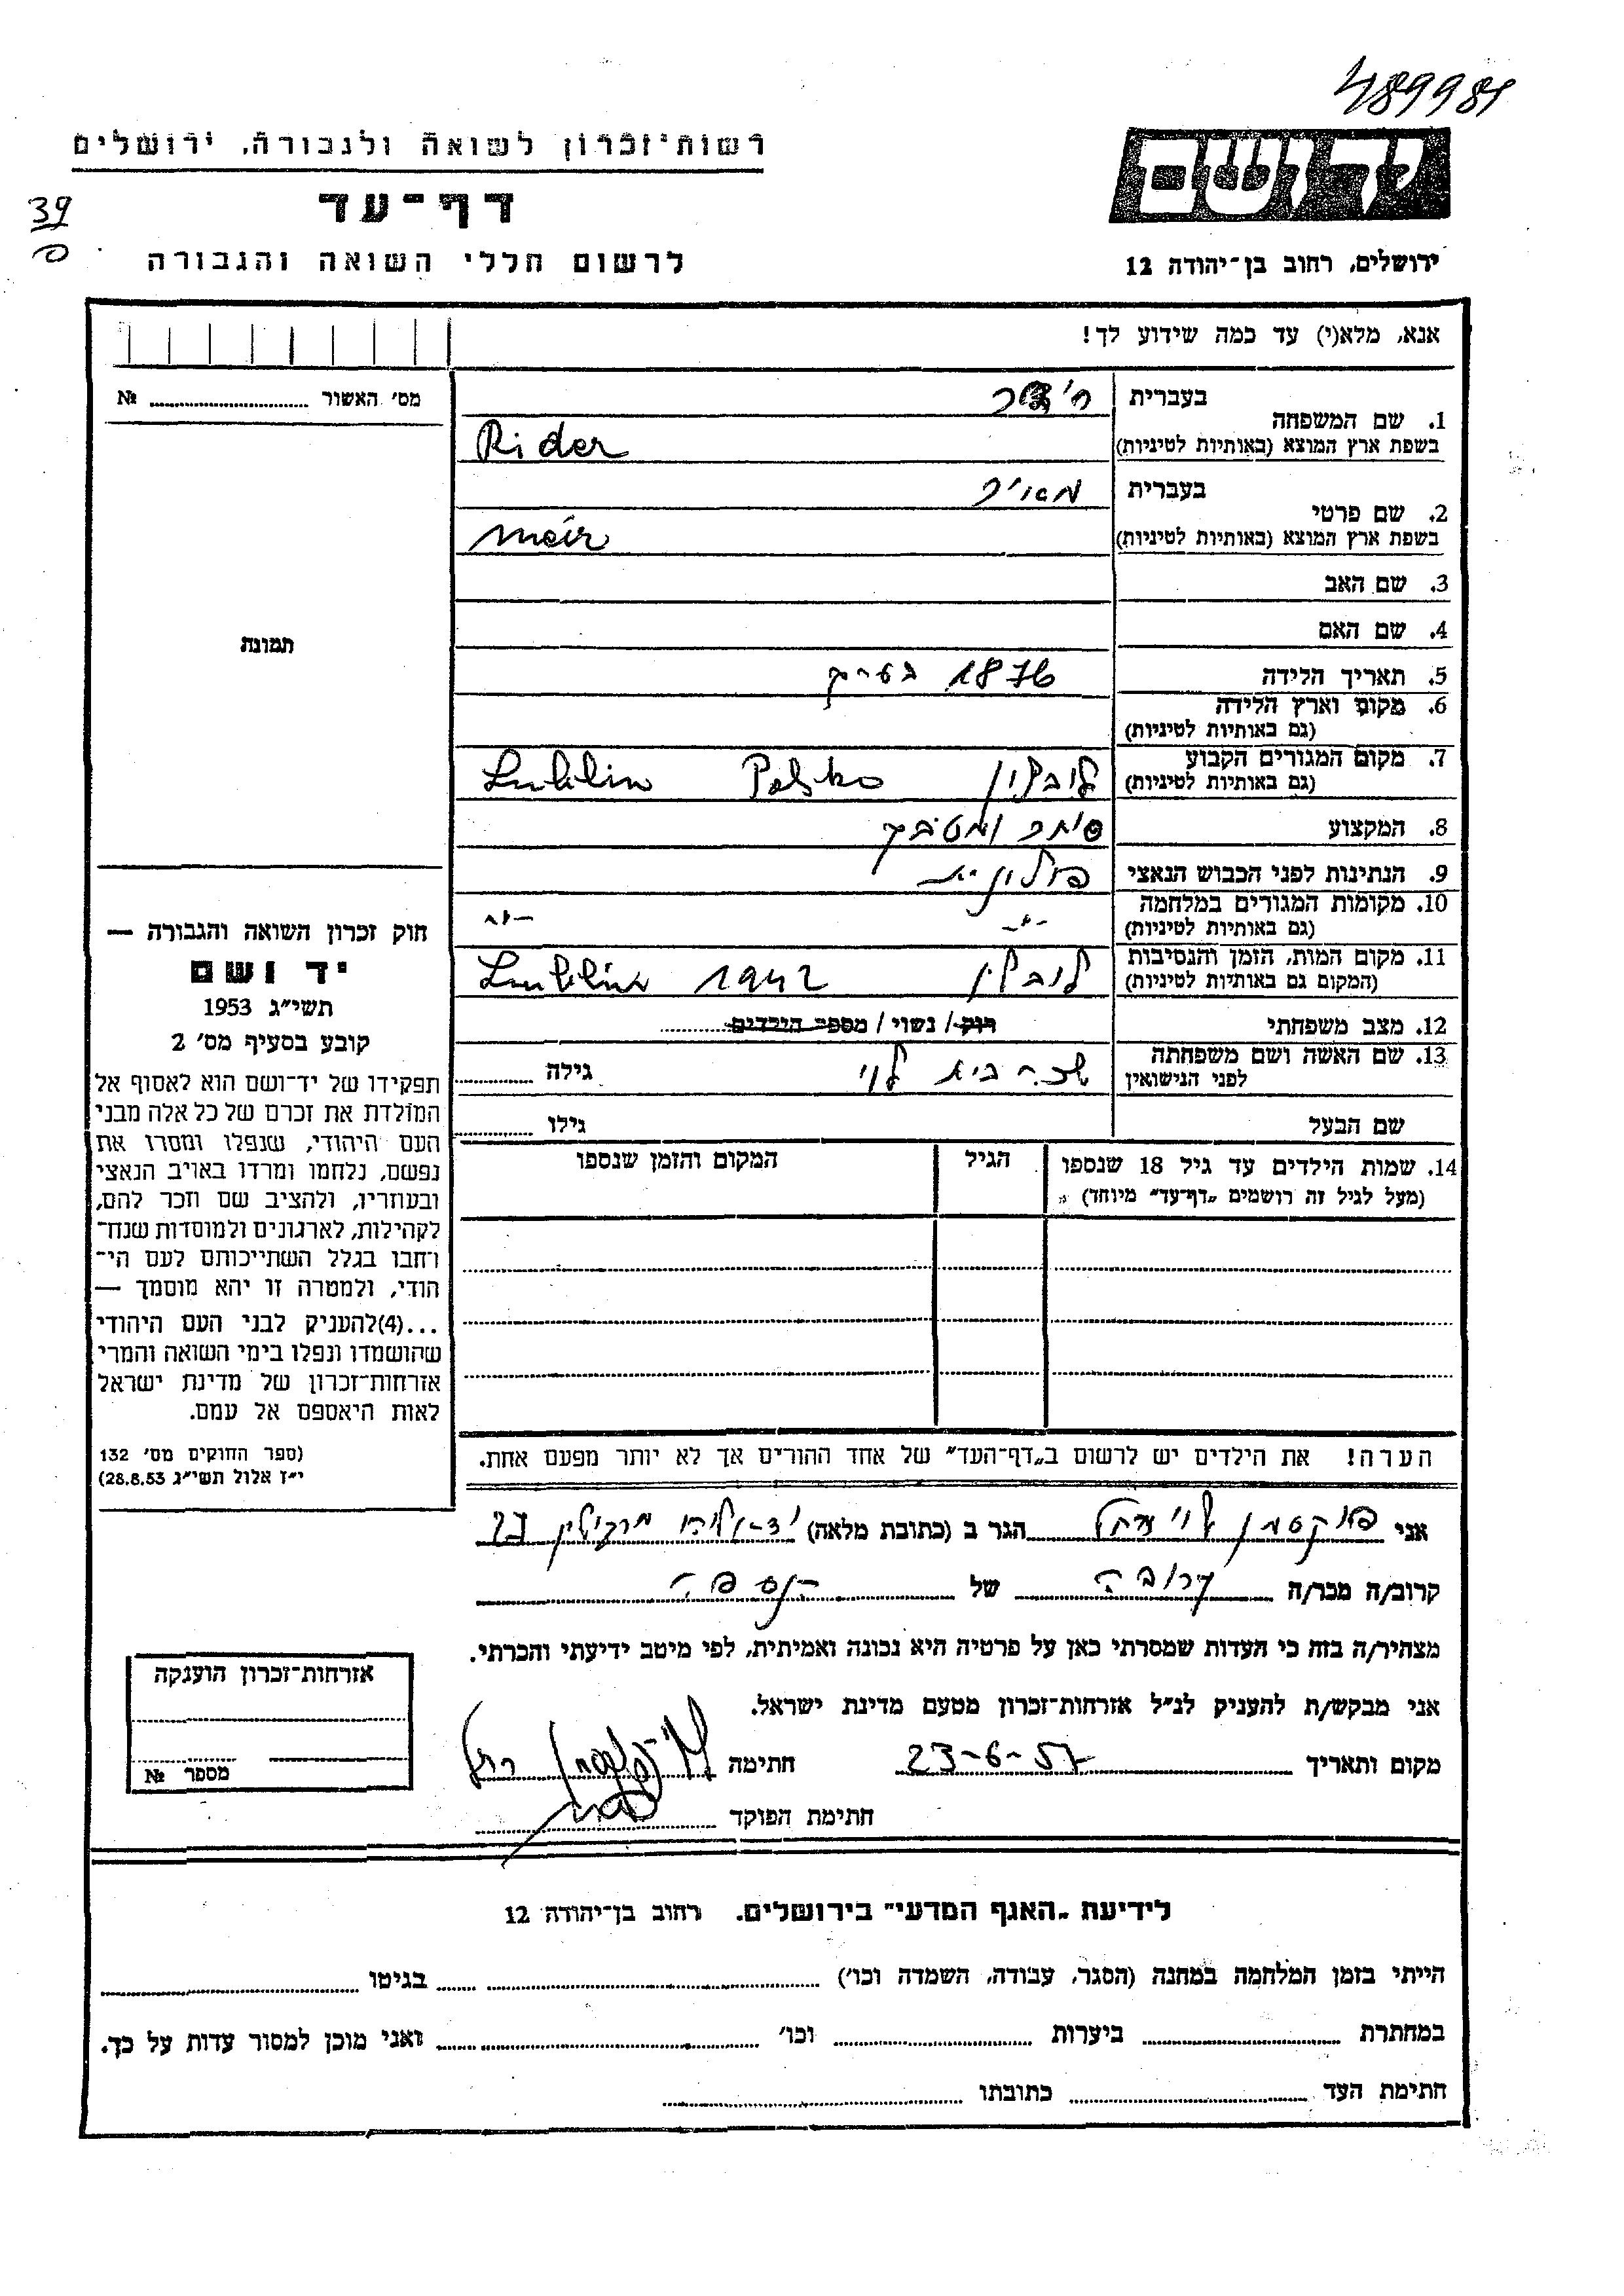 489981
רשות־זכרון לשואה ולגבורה, ירושלים
יד ושם
דף־עד
39
לרשום חללי השואה והגבורה
ירושלים, רחוב בן־יהודה 12
אנא, מלא(י) עד כמה שידוע לך!
מס׳ האשור № ..........
1. שם המשפחה
בעברית
בשפת ארץ המוצא (באותיות לטיניות)
Rider
2. שם פרטי
בעברית מאיר
בשפת ארץ המוצא (באותיות לטיניות)
Meir
3. שם האב
4. שם האם
תמונה
5. תאריך הלידה 1876 בערך
6. מקום וארץ הלידה
(גם באותיות לטיניות)
7. מקום המגורים הקבוע
(גם באותיות לטיניות)
לובלין Polsko Lublin
8. המקצוע סוחר
9. הנתינות לפני הכבוש הנאצי פולונית
10. מקומות המגורים במלחמה
(גם באותיות לטיניות)
-"- -"-
11. מקום המות, הזמן והנסיבות
(המקום גם באותיות לטיניות)
לובלין 1942 Lublin
12. מצב משפחתי רווק / נשוי / מספר הילדים ..........
13. שם האשה ושם משפחתה
לפני הנישואין
לוי גילה ..........
שם הבעל גילו ..........
14. שמות הילדים עד גיל 18 שנספו
(מעל לגיל זה רושמים „דף־עד״ מיוחד)
הגיל
המקום והזמן שנספו
חוק זכרון השואה והגבורה —
יד ושם
תשי״ג 1953
קובע בסעיף מס׳ 2
תפקידו של יד־ושם הוא לאסוף אל
המולדת את זכרם של כל אלה מבני
העם היהודי, שנפלו ומסרו את
נפשם, נלחמו ומרדו באויב הנאצי
ובעוזריו, ולהציב שם וזכר להם,
לקהילות, לארגונים ולמוסדות שנח־
רחבו בגלל השתייכותם לעם הי־
הודי, ולמטרה זו יהא מוסמך —
...(4)להעניק לבני העם היהודי
שהושמדו ונפלו בימי השואה והמרי
אזרחות־זכרון של מדינת ישראל
לאות היאספם אל עמם.
(ספר החוקים מס׳ 132
י״ז אלול תשי״ג 28.8.53)
הערה! את הילדים יש לרשום ב„דף־העד״ של אחד ההורים אך לא יותר מפעם אחת.
אני פוקסמן לוי רחל הגר ב (כתובת מלאה) יד-אליהו 27
קרוב/ה מכר/ה קרובה של הנספה
מצהיר/ה בזה כי העדות שמסרתי כאן על פרטיה היא נכונה ואמיתית, לפי מיטב ידיעתי והכרתי.
אני מבקש/ת להעניק לנ״ל אזרחות־זכרון מטעם מדינת ישראל.
מקום ותאריך 23-6-57 חתימה
חתימת הפוקד
אזרחות־זכרון הוענקה
מספר №
לידיעת „האגף המדעי״ בירושלים. רחוב בן־יהודה 12
הייתי בזמן המלחמה במחנה (הסגר, עבודה, השמדה וכו׳) .......... בגיטו ..........
במחתרת .......... ביערות .......... וכו׳ .......... ואני מוכן למסור עדות על כך.
חתימת העד .......... כתובתו ..........